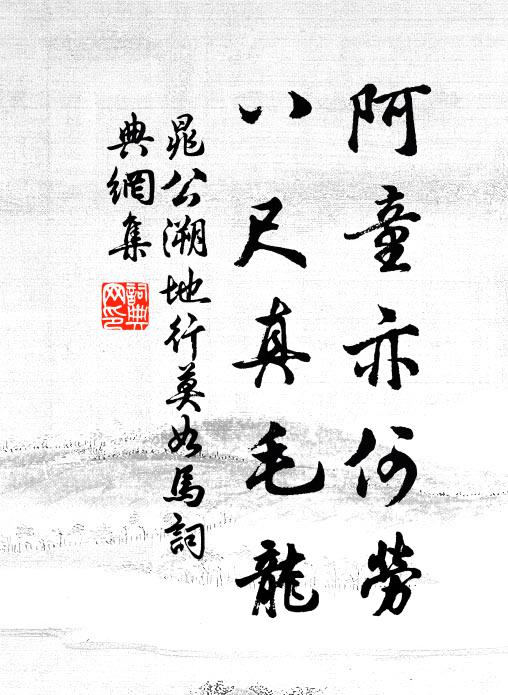 阿童亦何勞
八尺真毛龍
晁公溯地行莫如馬詞
典網集
詞典網印